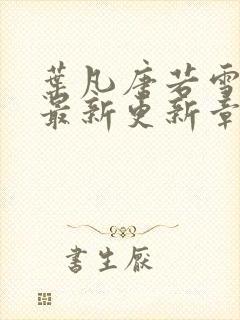 葉凡唐若雪
最新更新章
書生厭